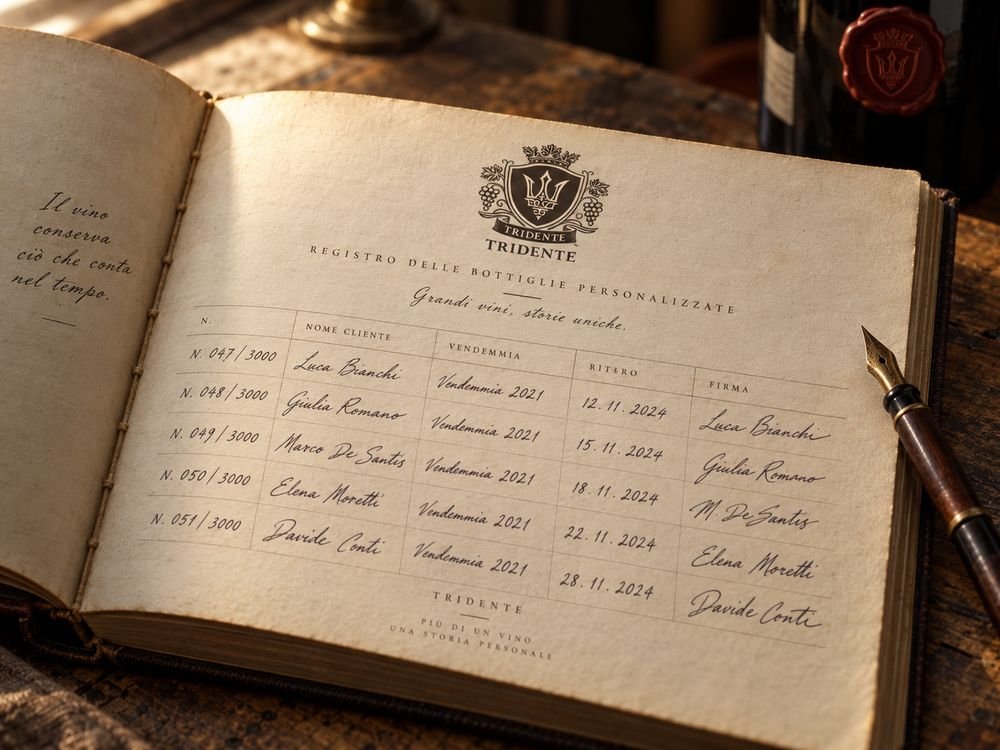 Il vino
conserva
ciò che conta
nel tempo.
TRIDENTE
TRIDENTE
REGISTRO DELLE BOTTIGLIE PERSONALIZZATE
Grandi vini, storie uniche.
N. NOME CLIENTE VENDEMMIA RITERO FIRMA
N. 047/3000 Luca Bianchi Vendemmia 2021 12.11.2024 Luca Bianchi
N. 048/3000 Giulia Romano Vendemmia 2021 15.11.2024 Giulia Romano
N. 049/3000 Marco De Santis Vendemmia 2021 18.11.2024 M. De Santis
N. 050/3000 Elena Moretti Vendemmia 2021 22.11.2024 Elena Moretti
N. 051/3000 Davide Conti Vendemmia 2021 28.11.2024 Davide Conti
TRIDENTE
PIÙ DI UN VINO
UNA STORIA PERSONALE